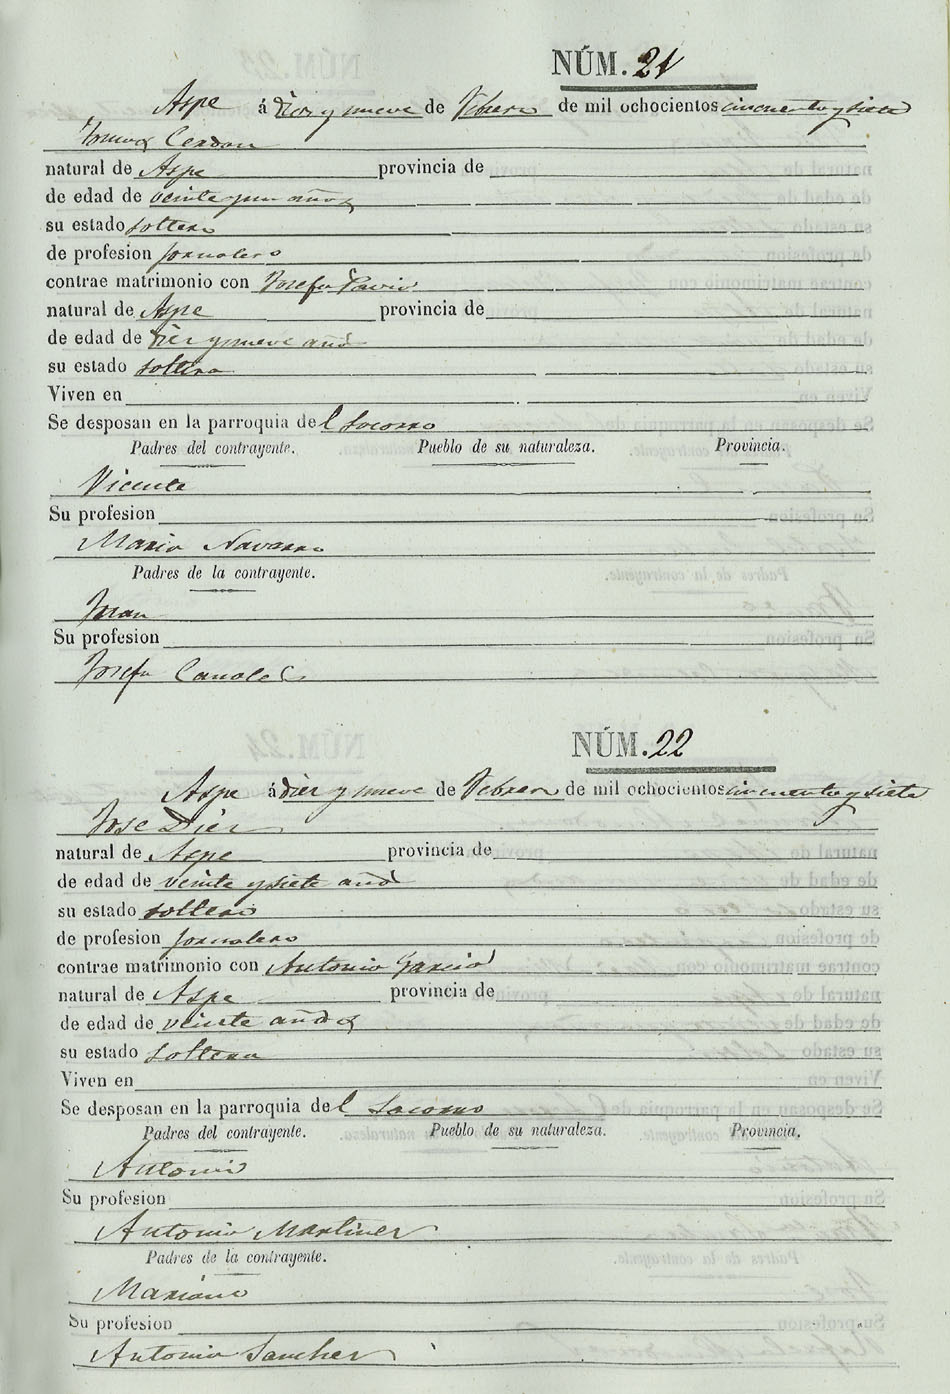 NÚM. 21
Aspe á diez y nueve de Febrero de mil ochocientos cincuenta y siete
Tomas Cerdan
natural de Aspe provincia de
de edad de veinte y un años
su estado soltero
de profesion jornalero
contrae matrimonio con Josefa Pavia
natural de Aspe provincia de
de edad de diez y nueve años
su estado soltera
Viven en
Se desposan en la parroquia del Socorro
Padres del contrayente. Pueblo de su naturaleza. Provincia.
Vicente
Su profesion
Maria Navarro
Padres de la contrayente.
Juan
Su profesion
Josefa
NÚM. 22
Aspe á diez y nueve de Febrero de mil ochocientos cincuenta y siete
Jose Diez
natural de Aspe provincia de
de edad de veinte y siete años
su estado soltero
de profesion jornalero
contrae matrimonio con Antonia Garcia
natural de Aspe provincia de
de edad de veinte años
su estado soltera
Viven en
Se desposan en la parroquia del Socorro
Padres del contrayente. Pueblo de su naturaleza. Provincia.
Antonio
Su profesion
Antonia Martinez
Padres de la contrayente.
Mariano
Su profesion
Antonia Sanchez